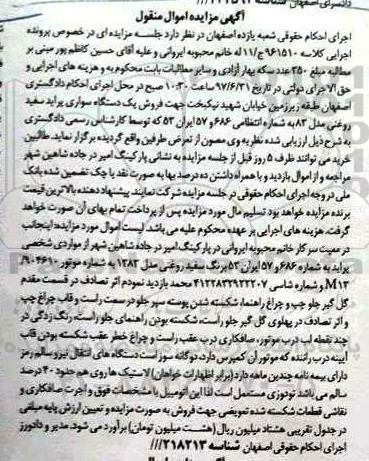 دادسرای اصفهان
آگهی مزایده اموال منقول
اجرای احکام حقوقی شعبه یازده اصفهان در نظر دارد جلسه مزایده ای در خصوص پرونده
اجرایی کلاسه ۹۶۱۵۱۰ ج/۱۱ له خانم محبوبه ایروانی و علیه آقای حسین کاظم پور مبنی بر
مطالبه مبلغ ۳۵۰ عدد سکه بهار آزادی و سایر مطالبات بابت محکوم به و هزینه های اجرایی و
حق الاجرای دولتی در تاریخ ۹۷/۶/۳۱ ساعت ۱۰:۳۰ صبح در محل اجرای احکام دادگستری
اصفهان طبقه زیرزمین خیابان شهید نیکبخت جهت فروش یک دستگاه سواری پراید سفید
روغنی مدل ۸۳ به شماره انتظامی ۶۸۶ و ۵۷ ایران ۵۳ که توسط کارشناس رسمی دادگستری
به شرح ذیل ارزیابی شده نظریه وی مصون از تعرض طرفین واقع گردیده برگزار نماید. طالبین
خرید می توانند ظرف ۵ روز قبل از جلسه مزایده به نشانی پارکینگ امیر در جاده شاهین شهر
مراجعه و از اموال بازدید و با همراه داشتن ده درصد بها به صورت نقد یا چک تضمین شده بانک
ملی در وجه اجرای احکام حقوقی در جلسه مزایده شرکت نمایند. پیشنهاد دهنده بالاترین قیمت
برنده مزایده خواهد بود تسلیم مال مورد مزایده پس از پرداخت تمام بهای آن صورت خواهد
گرفت. هزینه های اجرایی بر عهده محکوم علیه می باشد. لیست اموال مورد مزایده: اینجانب
در معیت سرکار خانم محبوبه ایروانی در پارکینگ امیر در جاده شاهین شهر از مواردی شخصی
پراید به شماره ۶۸۶ و ۵۷ ایران ۵۳ برنگ سفید روغنی مدل ۱۳۸۳ به شماره موتور ۹۰۴۶۱۰/
M13 و شماره شاسی ۴۱۲۲۸۳۲۹۲۲۲۰۷ محمد بازدید نمودم اثر تصادف در قسمت مقدم
گل گیر جلو چپ و چراغ راهنما، شکسته شدن پوسته سپر جلو در سمت راست و قاب چراغ چپ
و اثر تصادف در پهلوی گل گیر جلو راست، شکسته بودن راهنمای جلو راست، رنگ زدگی در
چند نقطه لب درب موتور، صافکاری درب عقب راست و چراغ خطر عقب شکسته بودن قاب
آیینه درب راننده که موتور آن کمپرس دارد، دوگانه سوز است دستگاه های انتقال نیرو سالم رمز
دارای بیمه نامه چندین ماهه دارد (برابر اظهارات خواهان) لاستیک ها روی هم حدود ۴۰ درصد
سالم می باشد تودوزی مستعمل است لذا این اتومبیل با مشخصات فوق و اجرت صافکاری و
نقاشی قطعات شکسته شده تعویضی جهت فروش به صورت مزایده و تعیین ارزش پایه مبلغی
در جدول تقریبی هشتاد میلیون ریال (هشت میلیون تومان) برآورد می شود. مدیر و دادورز
اجرای احکام حقوقی اصفهان شناسه ۲۱۸۲۱۳///